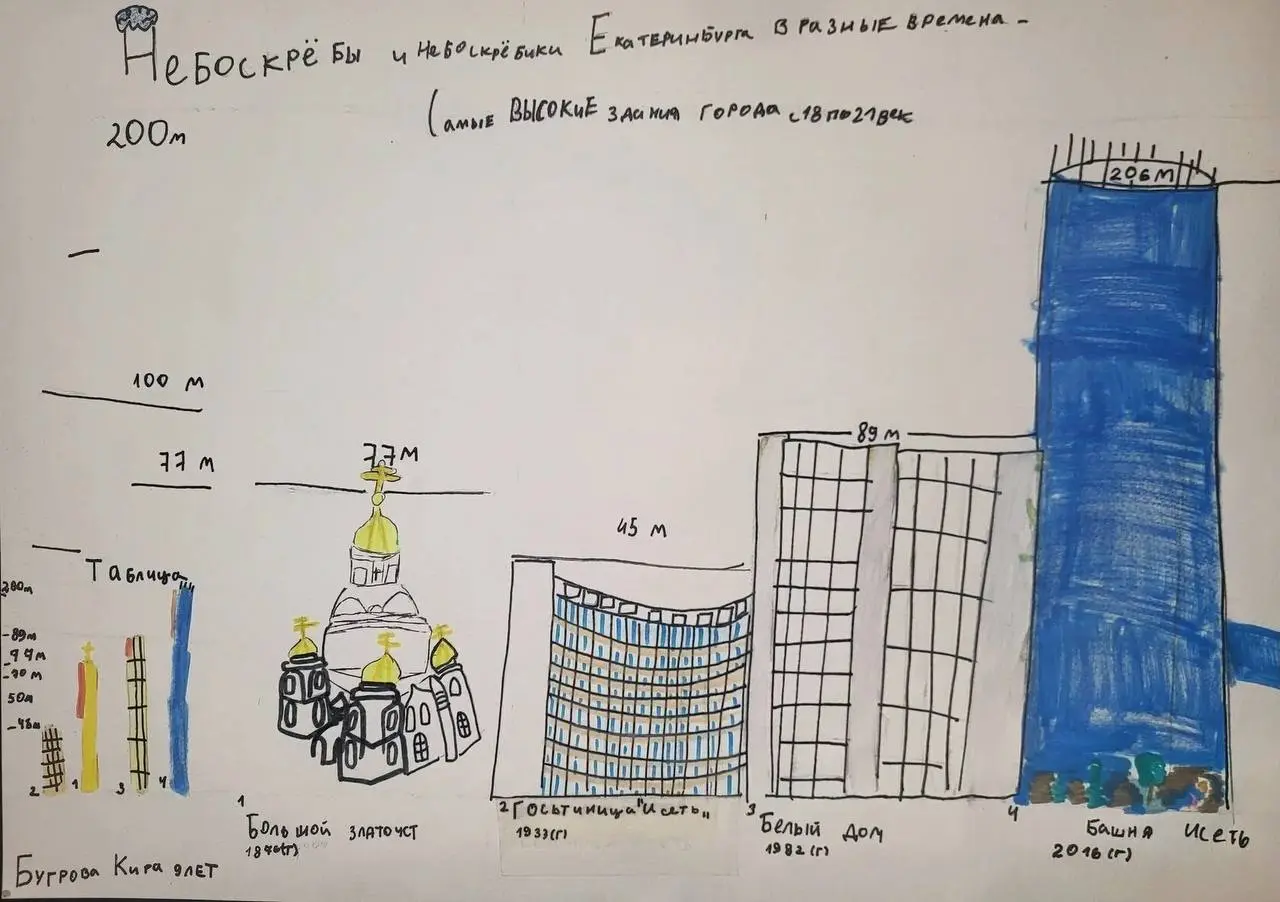 Небоскрёбы и небоскрёбики Екатеринбурга в разные времена -
Самые высокие здания города с 18 по 21 век
200м
206 м
100 м
77 м
77 м
89 м
45 м
Таблица
200м
89м
77м
70 м
50м
45м
2 1 3 4
1 Большой златоуст
2 Госьтиница "Исеть"
1933(г)
3 Белый дом
1982(г)
4 Башня Исеть
2016(г)
Бугрова Кира 9лет